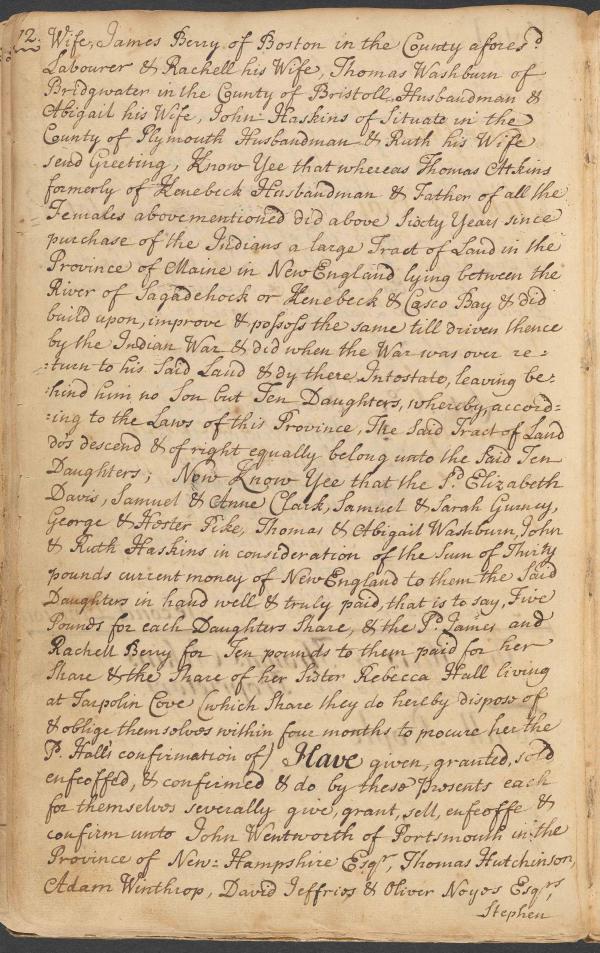 12.
Wife, James Berry of Boston in the County afores.d
Labourer & Rachell his Wife, Thomas Washburn of
Bridgwater in the County of Bristoll Husbandman &
Abigail his Wife, John Haskins of Situate in the
County of Plymouth Husbandman & Ruth his Wife
send Greeting, Know Yee that whereas Thomas Atkins
formerly of Kenebeck Husbandman & Father of all the
Females abovementioned did above Sixty Years since
purchase of the Indians a large Tract of Land in the
Province of Maine in New England lying between the
River of Sagadehock or Kenebeck & Casco Bay & did
build upon, improve & possess the same till driven thence
by the Indian War & did when the War was over re=
=turn to his said Land & dy there Intestate, leaving be=
=hind him no Son but Ten Daughters, whereby, accord=
=ing to the Laws of this Province, The said Tract of Land
dos descend & of right equally belong unto the said Ten
Daughters; Now Know Yee that the s.d Elizabeth
Davis, Samuel & Anne Clark, Samuel & Sarah Gurney,
George & Hester Pike, Thomas & Abigail Washburn, John
& Ruth Haskins in consideration of the Sum of Thirty
pounds current money of New England to them the said
Daughters in hand well & truly paid, that is to say, Five
Pounds for each Daughters Share, & the s.d James and
Rachell Berry for Ten pounds to them paid for her
Share & the Share of her Sister Rebecca Hall living
at Tarpolin Cove (which Share they do hereby dispose of
& oblige themselves within four months to procure her the
s.d Halls confirmation of) Have given, granted, sold
enfeoffed, & confirmed & do by these Presents each
for themselves severally give, grant, sell, enfeoffe &
confirm unto John Wentworth of Portsmouth in the
Province of New=Hampshire Esqr, Thomas Hutchinson,
Adam Winthrop, David Jeffries & Oliver Noyes Esqrs,
Stephen